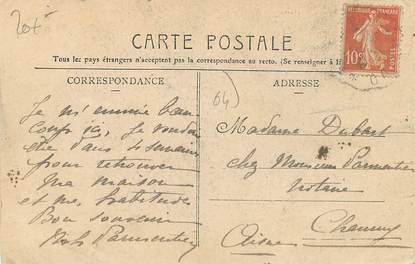 20f
CARTE POSTALE
Tous les pays étrangers n'acceptent pas la correspondance au recto. (Se renseigner à
CORRESPONDANCE
ADRESSE
10c
POSTES
64
Je m'ennuie beau
coup ici, je voudrais
être dans 4 semaines
pour retrouver
ma maison
et mes habitudes
Bon souvenir
Parmentier
Madame Dubart
chez Monsieur Parmentier
Notaire
Chauny
Aisne